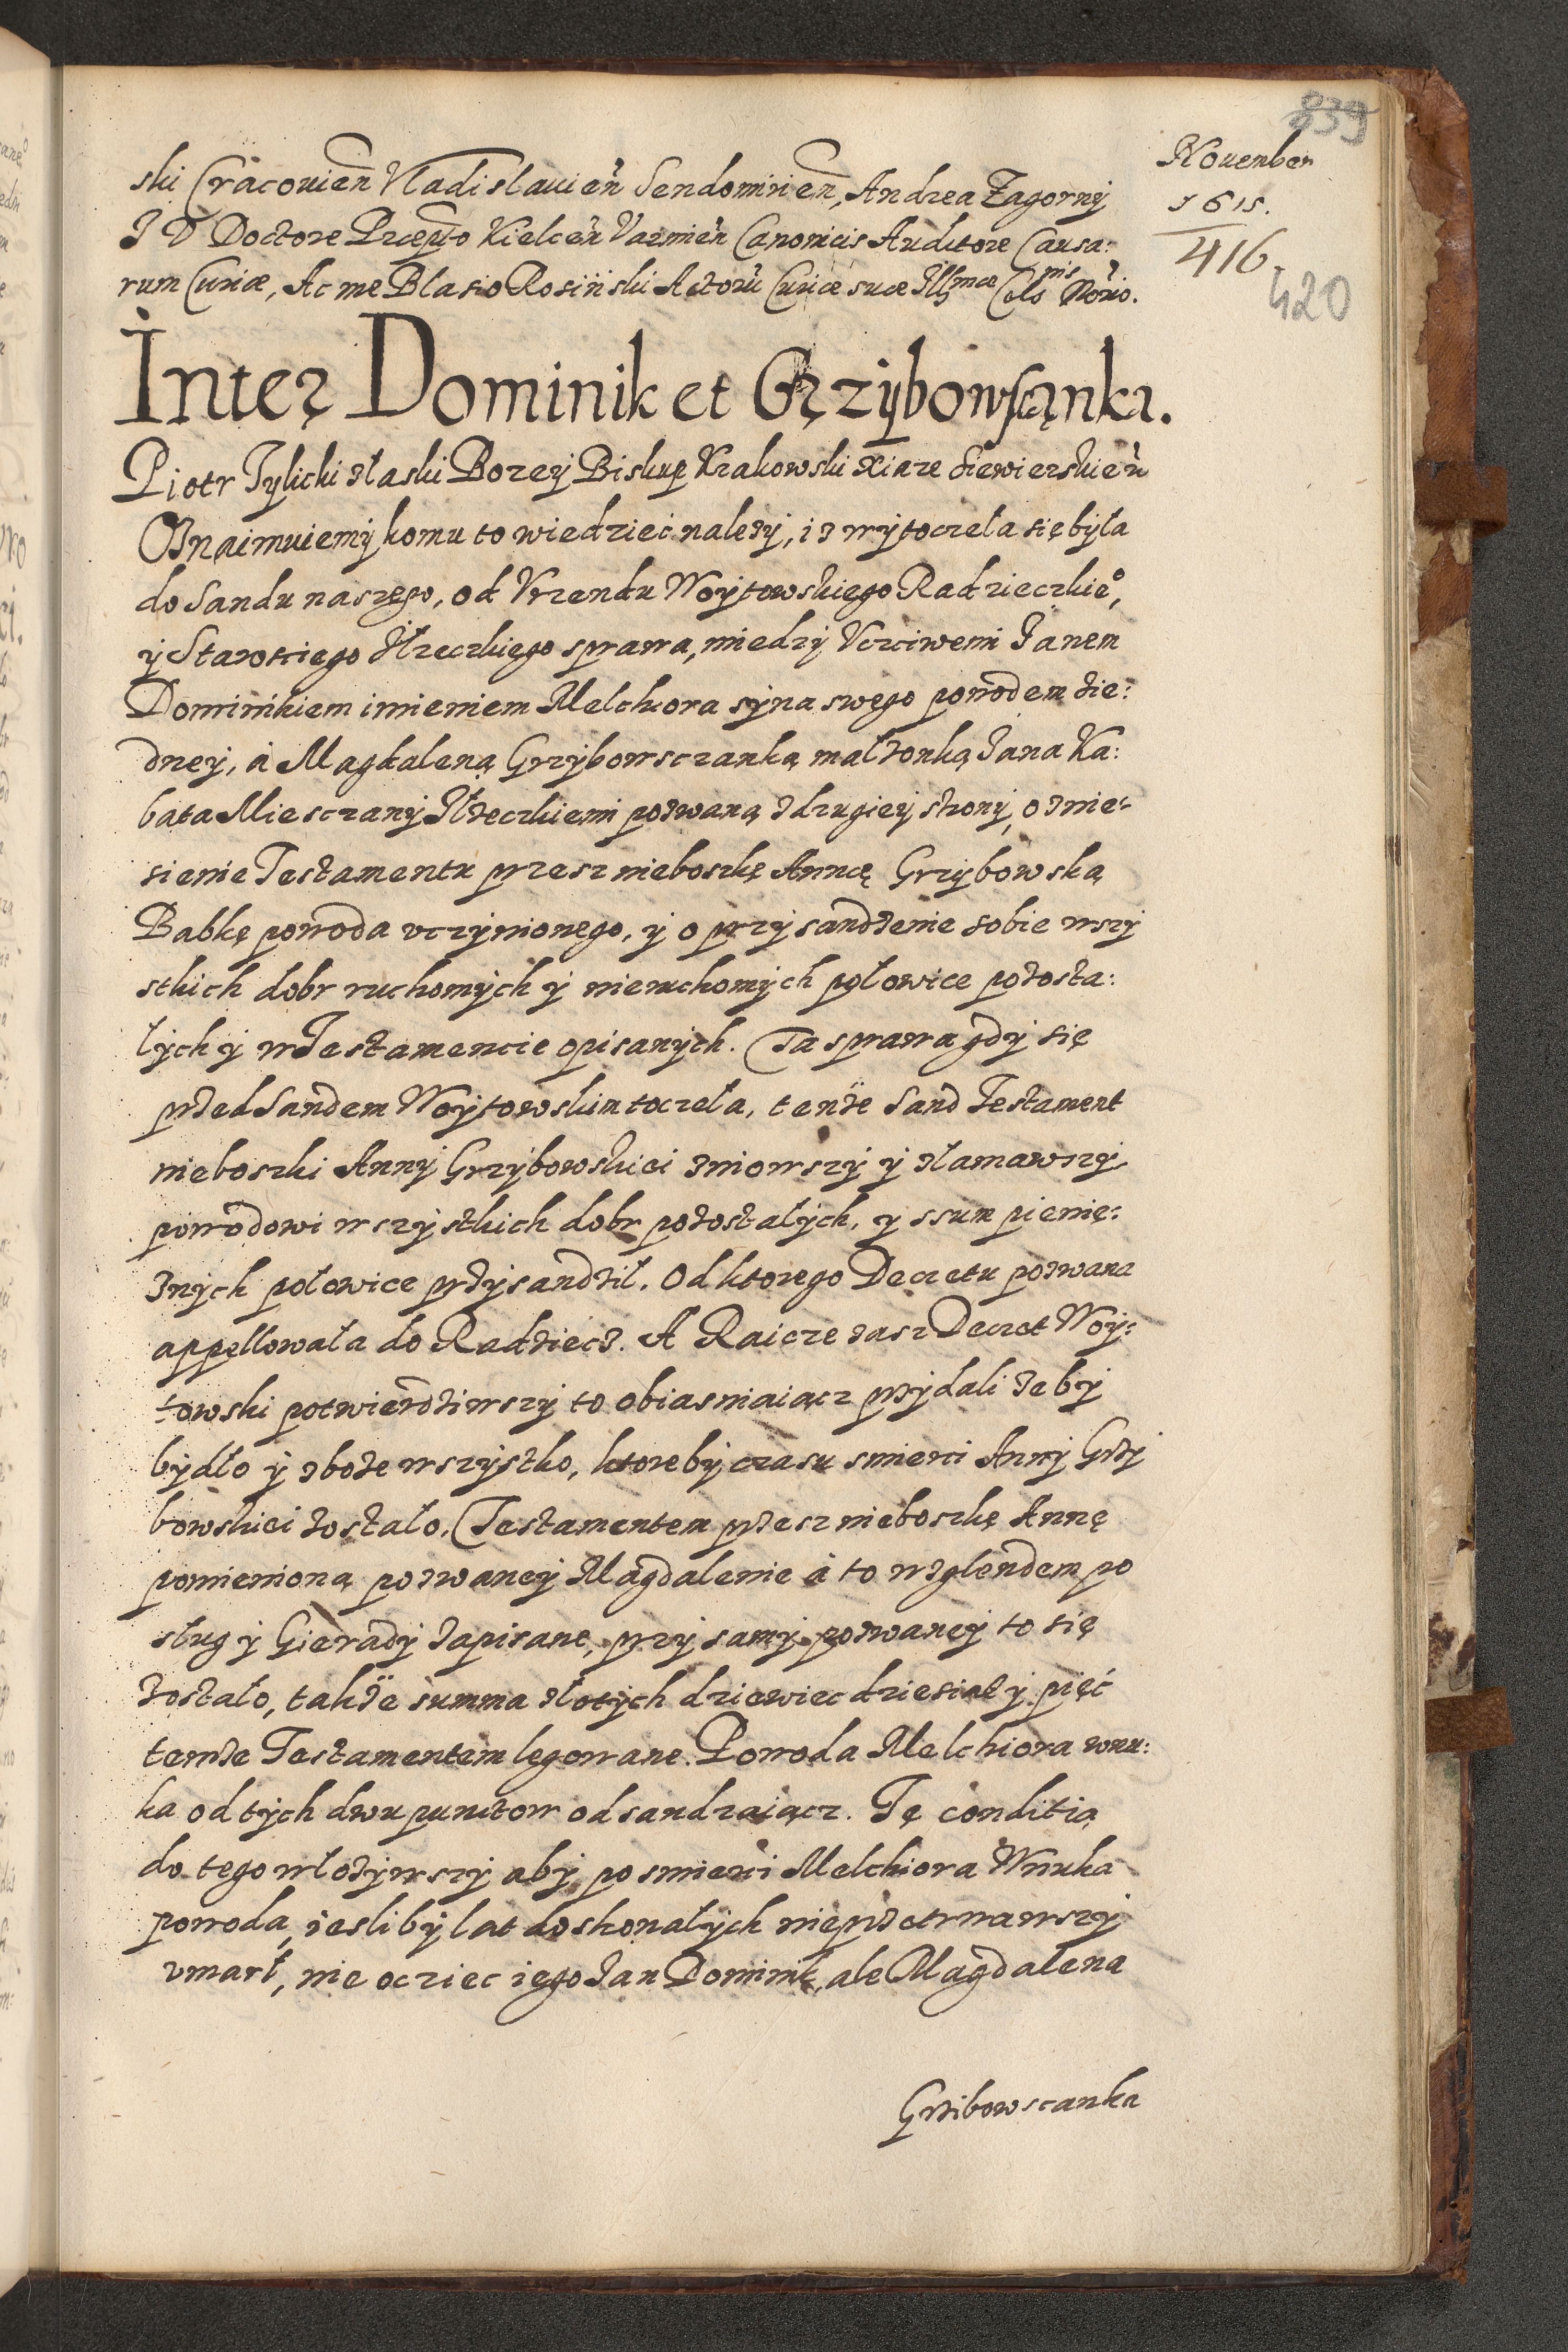 839
Nouember
1615.
416.
420
ski Cracouień Vladislauień Sendomirień, Andrea Zagorny
I V Doctore Praep̃to Kielceń Varmień Canonicis Auditore Causa:
rum Curiae, Ac me Blasio Rosiński Actorũ Curiae suae Illmae Celsnis Norio.
Inter Dominik et Grzybowscanka.
Piotr Tylicki Złaski Bozey Biskup Krakowski Xiaze Siewierskień
Oznaimuiemy komu to wiedziec nalezy, iz wytoczela się była
do Sandu naszego, od Vrzendu Woytowskiego Radzieczkieo,
y Staroscięgo Ilzeczkięgo sprawa, miedzy Vczciwemi Janem
Dominikiem imieniem Melchiora syna swego powodem zie:
dney, á Magdaleną Grzybowsczanką malzonką Jana Ka:
bata Miesczany Ilzeczkiemi pozwaną zdrugiey strony, o znie:
sienie Testamentu przesz nieboszkę Annę Grzybowską
Babkę powoda vczynionego, y o przysandzenie sobie wszy
stkich dobr ruchomych y nieruchomych połowice pozosta:
łych y w Testamencie opisanych. Ta sprawa gdy się
przed Sandem Woytowskim toczeła, tenze Sand Testament
nieboszki Anny Grzybowskiei zniowszy y złamawszy
powodowi wszystkich dobr pozostałych, y ssum pienię:
znych połowice przysandził. Od ktorego Decretu pozwana
appellowała do Radziecz. A Raicze zasz Decret Woy:
towski potwierdziwszy to obiasniaiącz przydali zeby
bydło y zboze wszystko, ktoreby czasu smierci Anny Grzy
bowskiei zostało, Testamentem przesz nieboszkę Annę
pomienioną pozwaney Magdalenie á to wzglendem po
sług y Gierady zapisane, przy samy pozwaney to się
zostało, takze summa złotych dziewiecdziesiat y pięć
temze Testamentem legowane. Powoda Melchiora wnu:
ka od tych dwu punctow odsandzaiącz. Tę conditią
do tego włozywszy aby po smierci Melchiora Wnuka
powoda, iesliby lat doskonałych nieprzetrwawszy
vmarł, nie ocziec iego Jan Dominik, ale Magdalena
Grzibowscanka